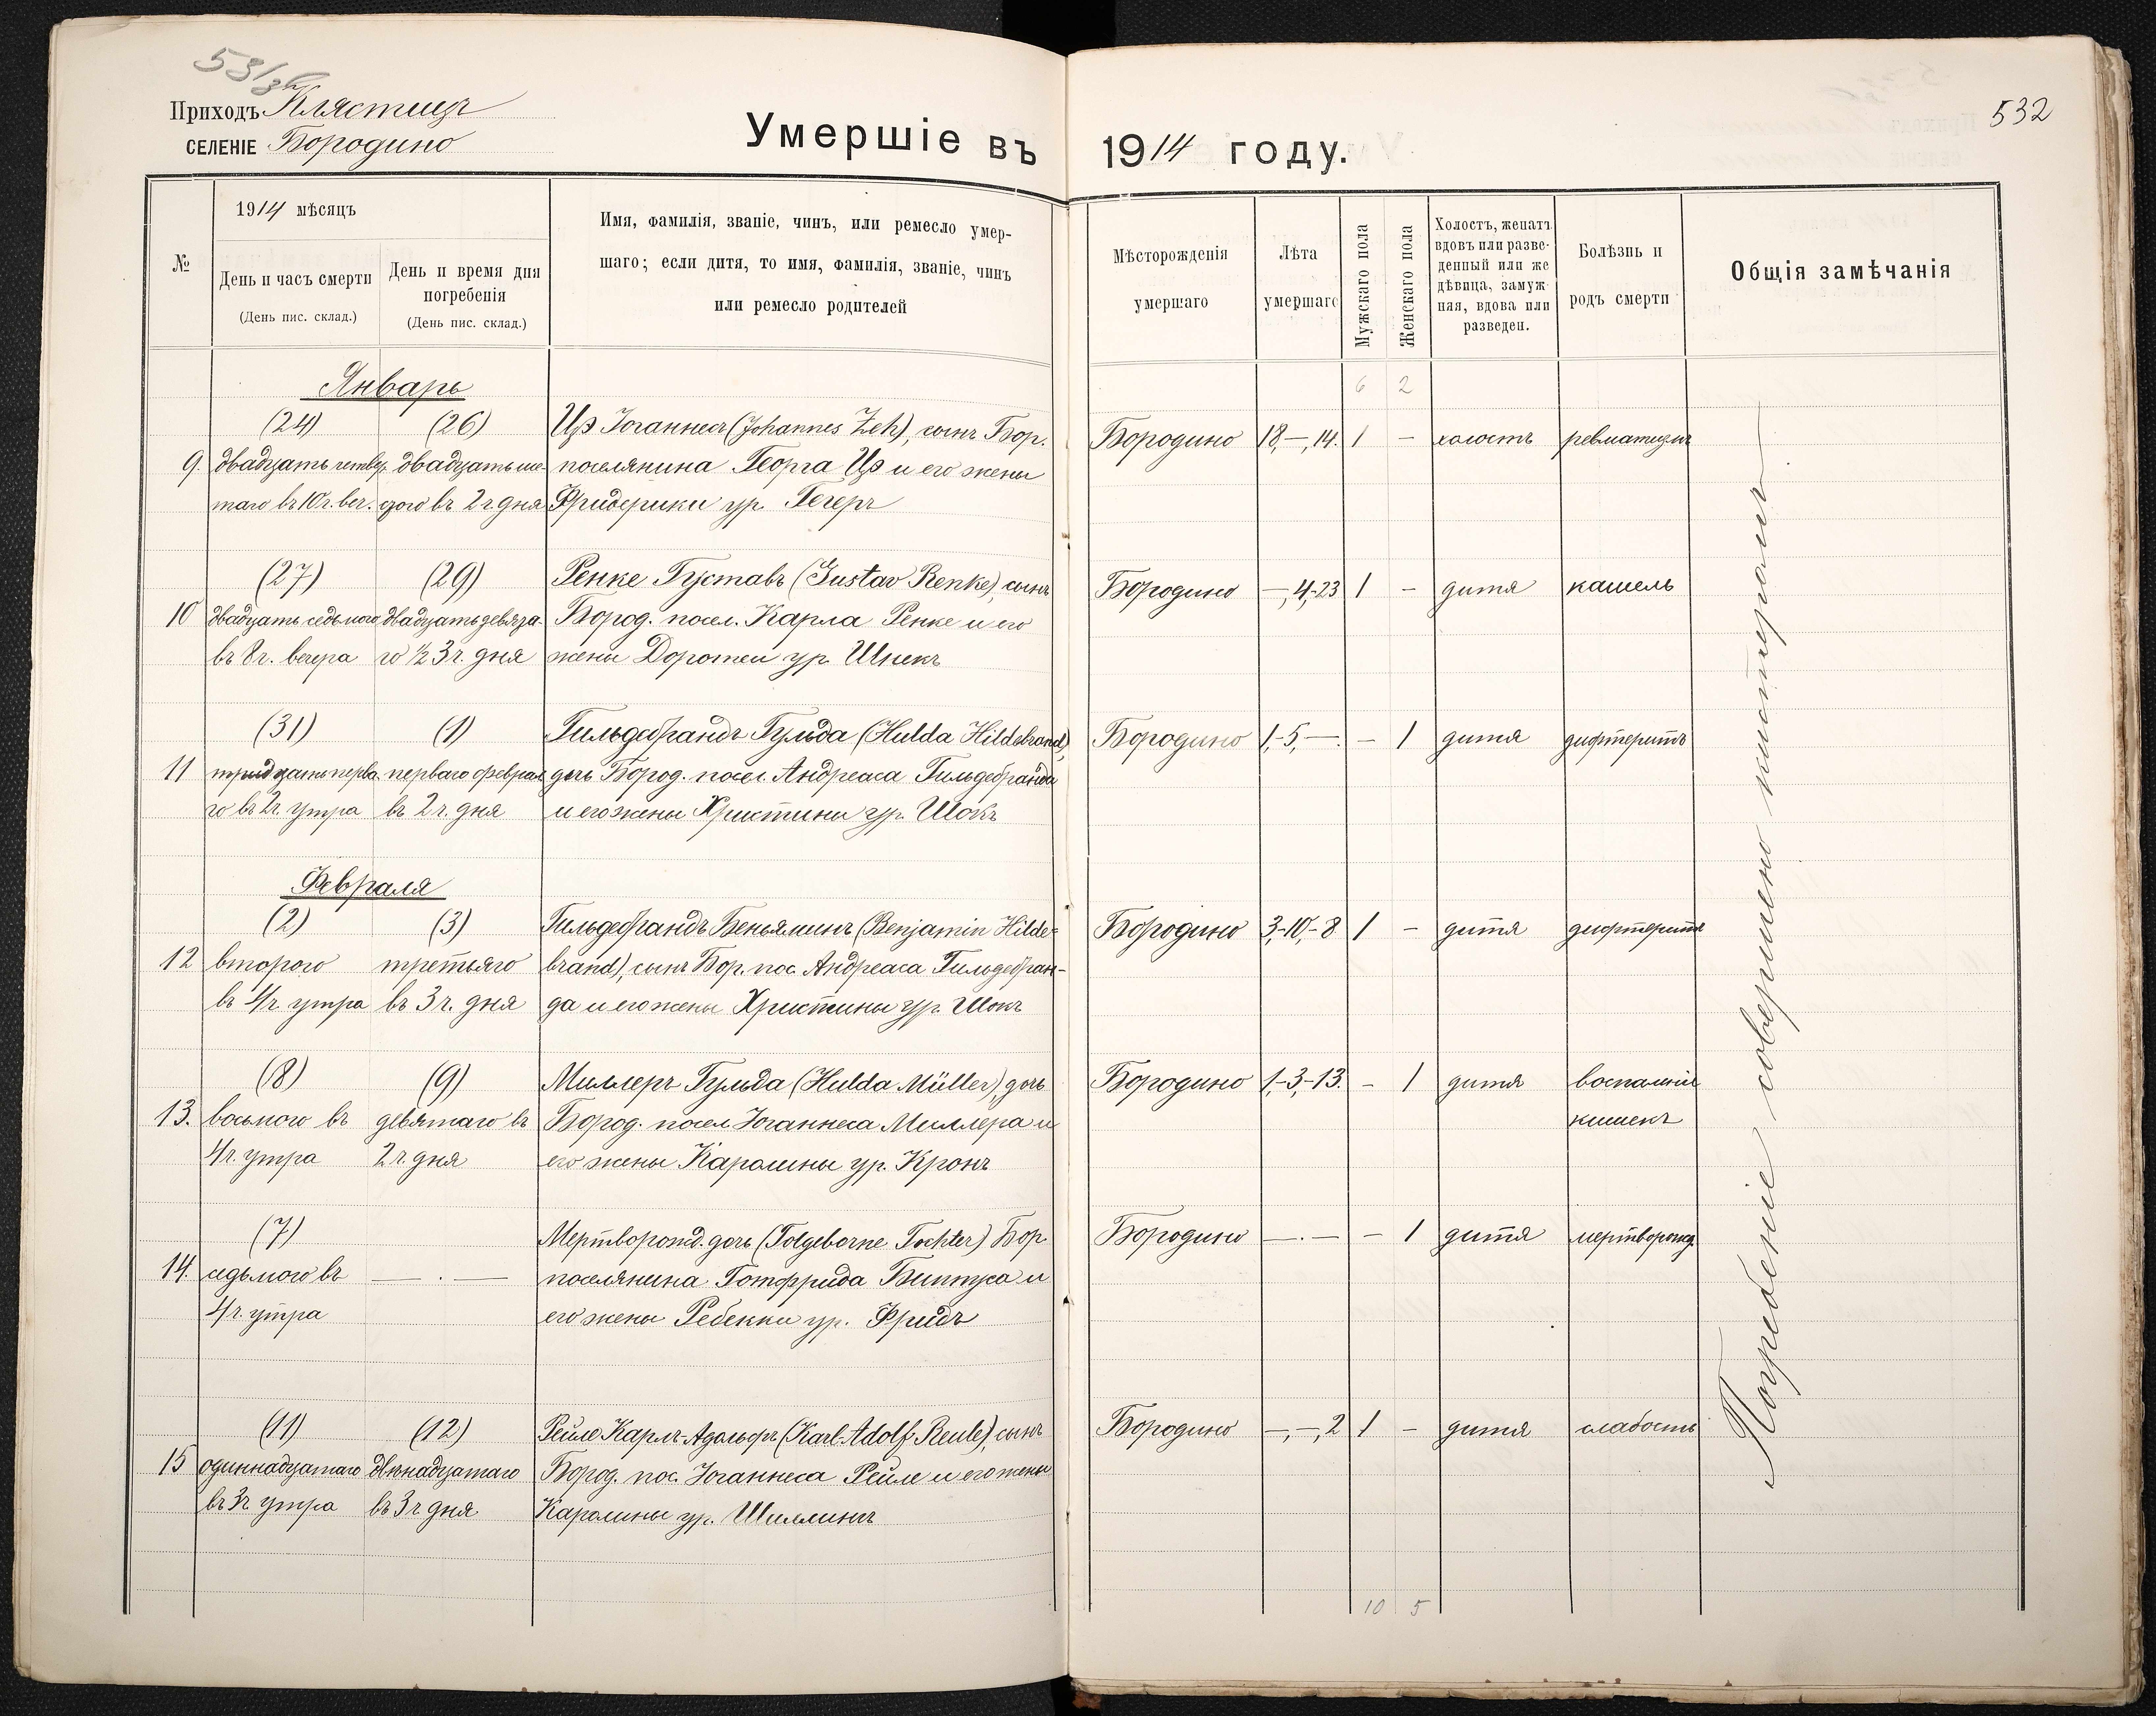 Приходъ Клястицъ
селеніе Бородино
Умершіе въ 1914 году.
532
№
1914 мѣсяцъ
День и часъ смерти
(День пис. склад.)
День и время дня
погребенія
(День пис. склад.)
Имя, фамилія, званіе, чинъ, или ремесло умер-
шаго; если дитя, то имя, фамилія, званіе, чинъ
или ремесло родителей
Мѣсторожденія
умершаго
Лѣта
умершаго
Мужскаго пола
Женскаго пола
Холостъ, женатъ
вдовъ или разве-
денный или же
дѣвица, замуж-
ная, вдова или
разведен.
Болѣзнь и
родъ смерти
Общія замѣчанія
Январь
6 2
(24) (26) Цэ Іоганнесъ (Johannes Zeh), сынъ Бор. Бородино 18,—,14. 1 — холостъ ревматизмъ
9. двадцать четвер- двадцать ше- поселянина Георга Цэ и его жены
таго въ 10 ч. веч. стого въ 2 ч. дня Фридерики ур. Гегеръ
(27) (29) Ренке Густавъ (Gustav Renke), сынъ Бородино —,4,-23 1 — дитя кашель
10 двадцать седьмого двадцать девята- Бород. посел. Карла Ренке и его
въ 8 ч. вечера го ½ 3 ч. дня жены Доротеи ур. Шпекъ
(31) (1) Гильдебрандъ Гульда (Hulda Hildebrand), Бородино 1,-5,—. — 1 дитя дифтеритъ
11 тридцать перва- перваго февраля дочь Бород. посел. Андреаса Гильдебранда
го въ 2 ч. утра въ 2 ч. дня и его жены Христины ур. Шокъ
Февраля
(2) (3) Гильдебрандъ Беньяминъ (Benjamin Hilde- Бородино 3,-10,-8 1 — дитя дифтеритъ
12 второго третьяго brand), сынъ Бор. пос. Андреаса Гильдебран-
въ 4 ч. утра въ 3 ч. дня да и его жены Христины ур. Шокъ
(8) (9) Миллеръ Гульда (Hulda Müller), дочь Бородино 1,-3,-13. — 1 дитя воспаленіе
13. восьмого въ девятаго въ Бород. посел. Іоганнеса Миллера и кишекъ
4 ч. утра 2 ч. дня его жены Каролины ур. Кронъ
(7) Мертворожд. дочь (Totgeborne Tochter) Бор. Бородино —.— — 1 дитя мертворожд.
14. седьмого въ —.— поселянина Готфрида Биптуса и
4 ч. утра его жены Ребекки ур. Фридъ
(11) (12) Рейле Карлъ-Адольфъ (Karl-Adolf Reule), сынъ Бородино —,—,2 1 — дитя слабость
15 одиннадцатаго двѣнадцатаго Бород. пос. Іоганнеса Рейле и его жены
въ 3 ч. утра въ 3 ч. дня Каролины ур. Шиллингъ
10 5
Погребеніе совершено кистеромъ